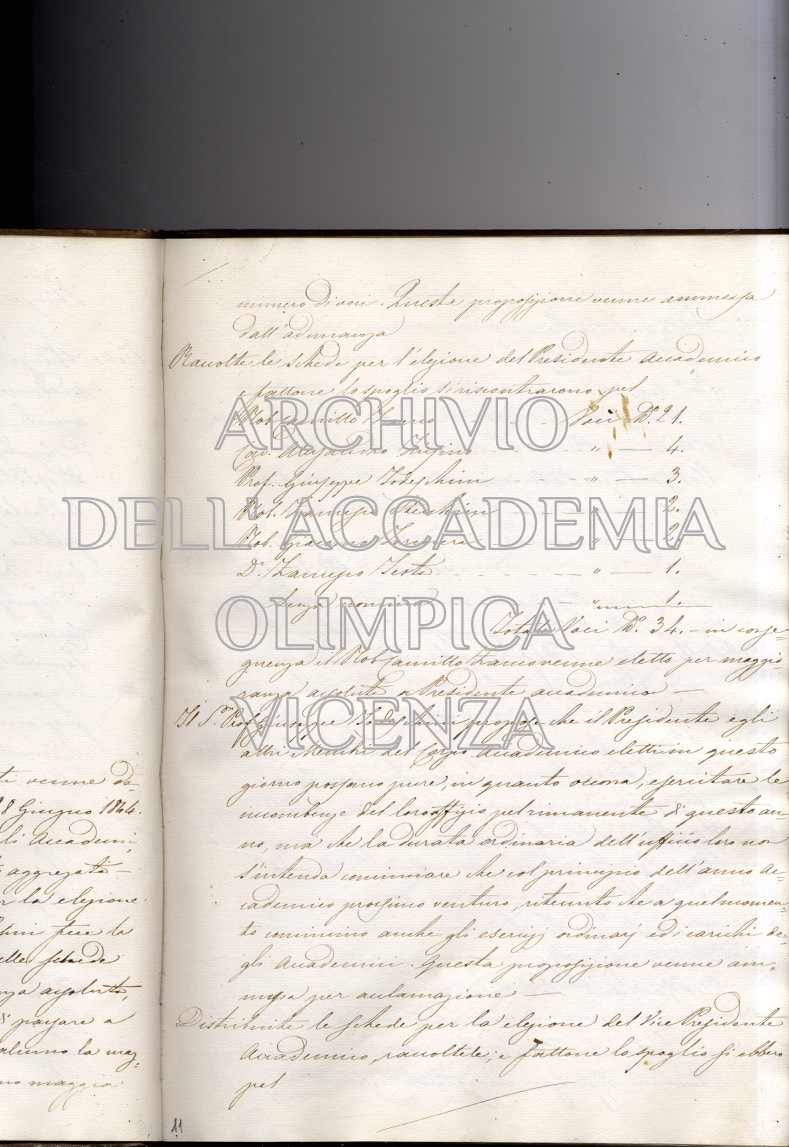 numero di voci. Questa proposizione venne ammessa
dall'adunanza
Raccolte le schede per l'elezione del Presidente Accademico
e fattone lo spoglio si riscontrarono pel
Nob. Camillo Voci N.º 21.
Cav. Alessandro " — 4.
Prof. Giuseppe Todeschini " — 3.
Nob. " — 2.
Nob. " — 2.
D.r Testa " — 1.
Senza nomina " 1.
Totale Voci N.º 34. — in conse-
guenza il Nob. Camillo venne eletto per maggio-
ranza assoluta a Presidente accademico —
Il S.r Prof. Giuseppe Todeschini propose che il Presidente e gli
altri Membri del Corpo Accademico eletti in questo
giorno possano pure, in quanto occorra, esercitare le
incombenze del loro offizio pel rimanente di questo an-
no, ma che la durata ordinaria dell'ufficio loro non
s'intenda cominciare che col principio dell'anno Ac-
cademico prossimo venturo, ritenuto che a quel momen-
to comincino anche gli esercizj ordinarj ed i carichi de-
gli Accademici. Questa proposizione venne am-
messa per aclamazione —
Distribuite le schede per la elezione del Vice Presidente
Accademico, raccoltele, e fattone lo spoglio si ebbero
pel
11
ti venne da-
8 Giugno 1844.
li Accademi-
aggregato —
r la elezione
tini fece la
elle schede
nza assoluta,
di passare a
alcuno la mag-
no maggio
ARCHIVIO
DELL'ACCADEMIA
OLIMPICA
VICENZA